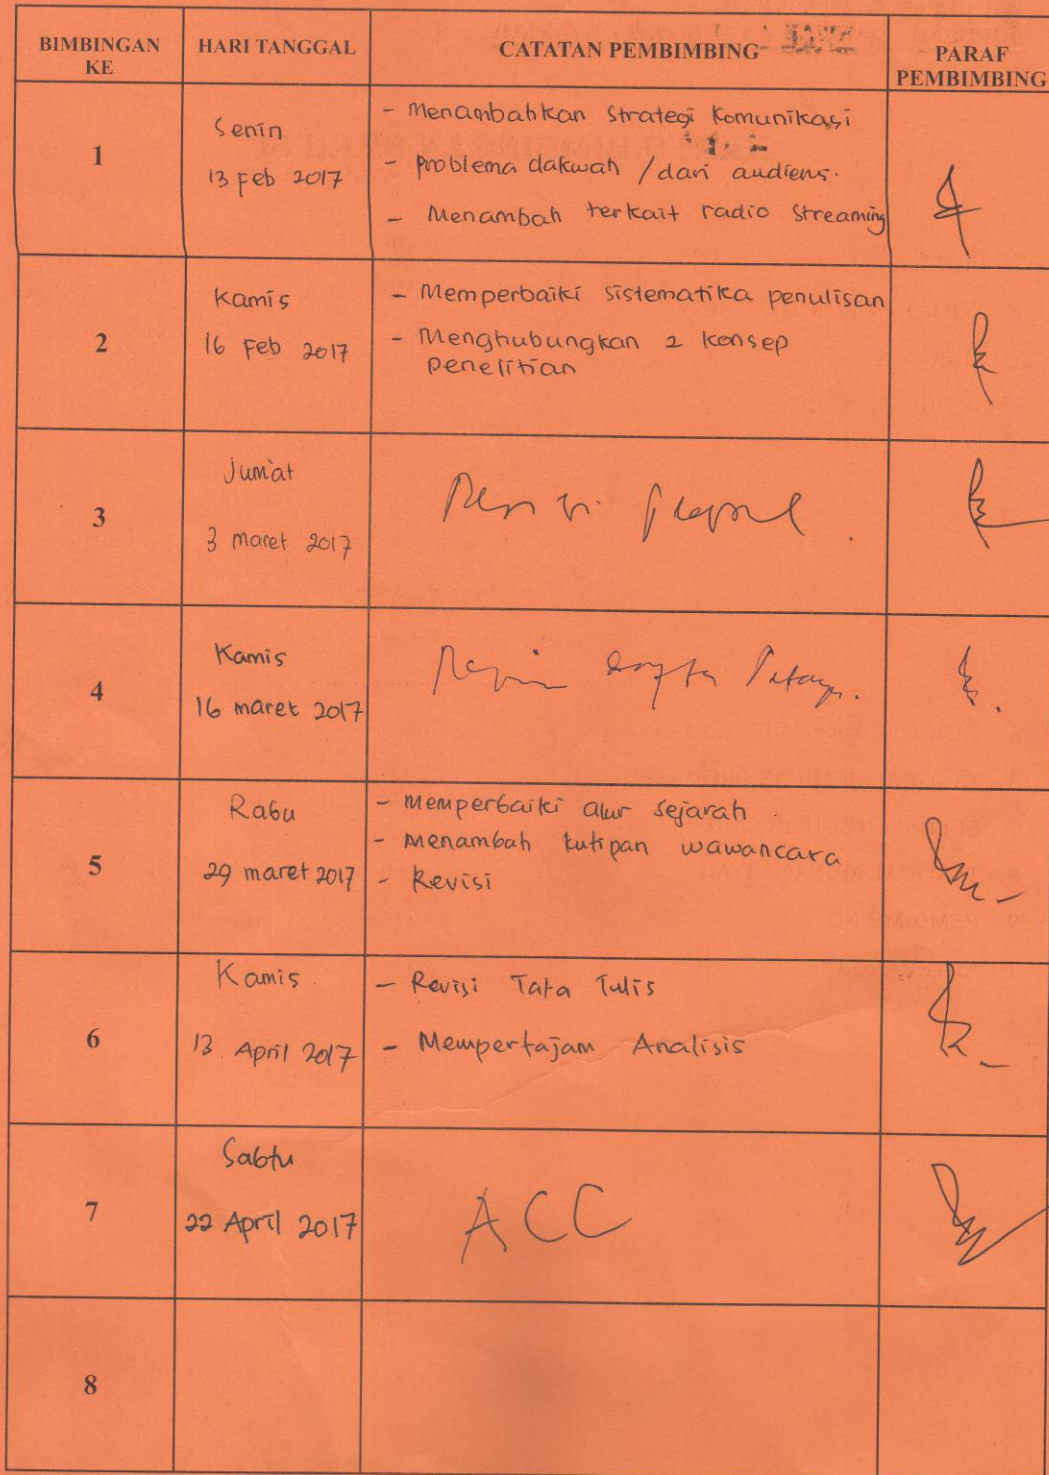 BIMBINGAN KE
HARI TANGGAL
CATATAN PEMBIMBING
PARAF PEMBIMBING
1
Senin
13 Feb 2017
- Menambahkan Strategi Komunikasi
- problema dakwah / dari audiens.
- Menambah terkait radio Streaming
2
Kamis
16 Feb 2017
- Memperbaiki sistematika penulisan
- Menghubungkan 2 konsep
penelitian
3
Jum'at
3 maret 2017
4
Kamis
16 maret 2017
Revisi
5
Rabu
29 maret 2017
- Memperbaiki alur sejarah
- Menambah kutipan wawancara
- Revisi
6
Kamis
13 April 2017
- Revisi Tata Tulis
- Mempertajam Analisis
7
Sabtu
22 April 2017
ACC
8